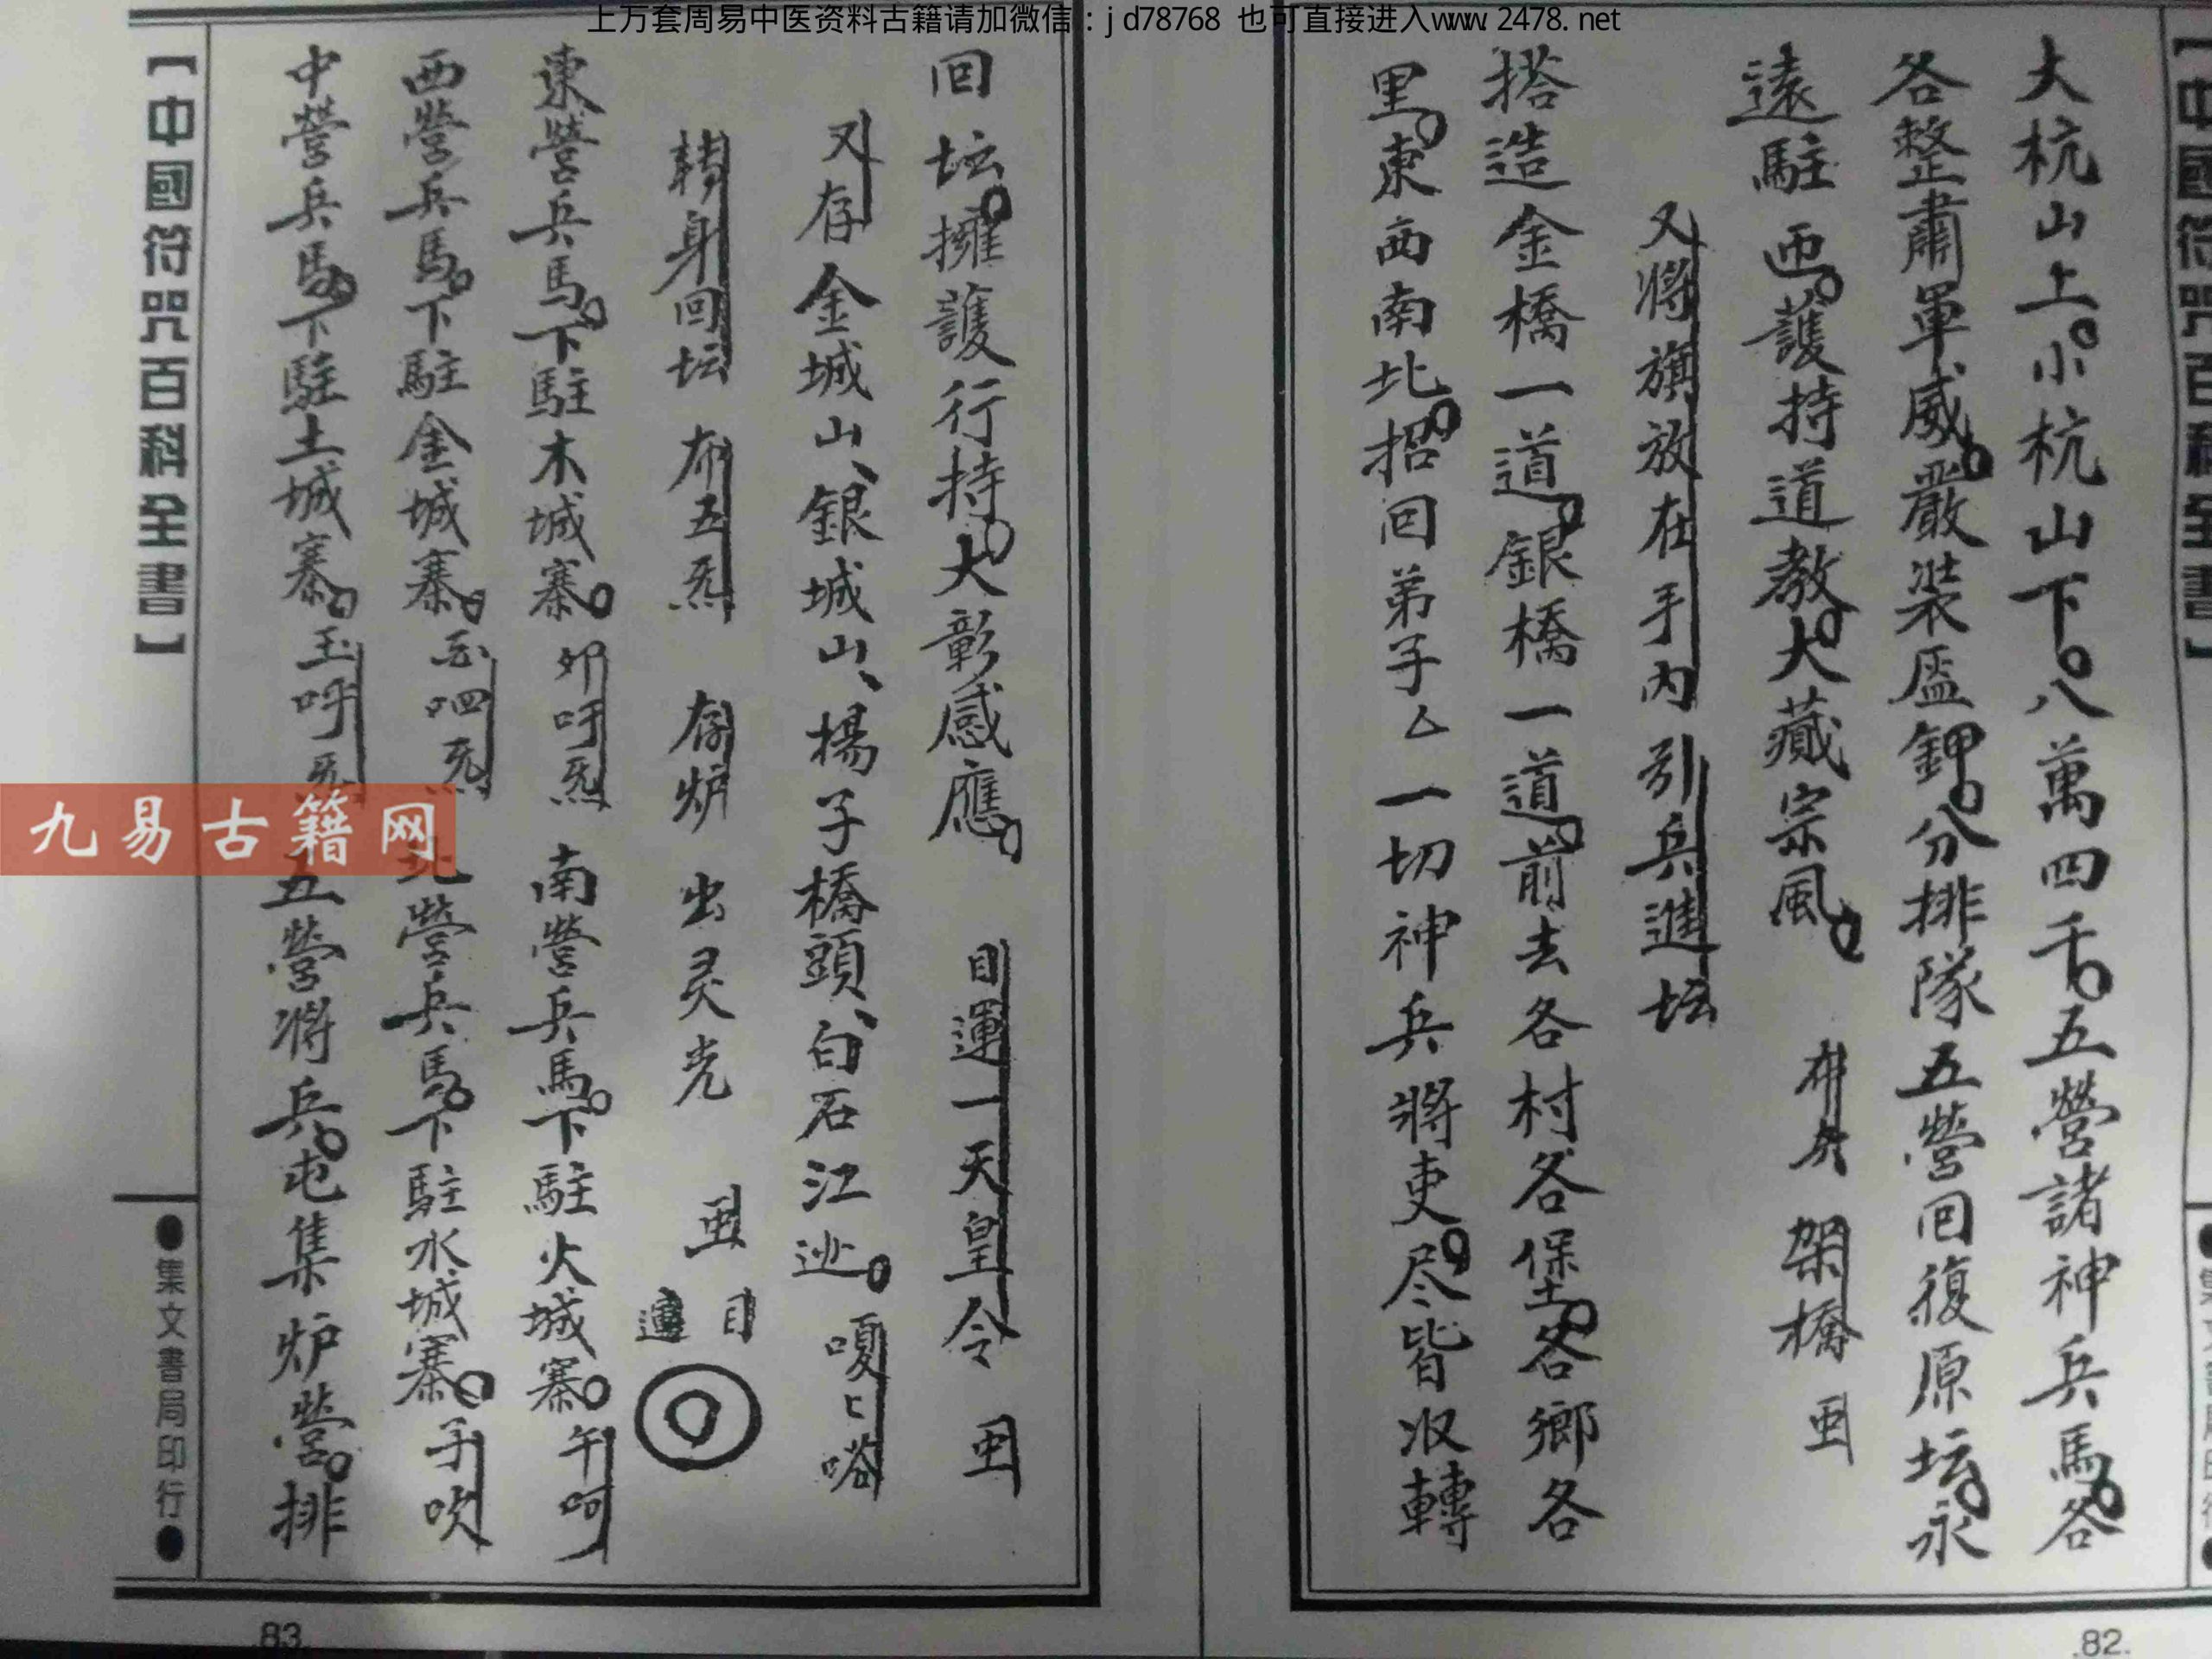 上万套周易中医资料古籍请加微信：jd78768 也可直接进入www.2478.net
【中國符咒百科全書】
大杭山上。小杭山下。八萬四千。五營諸神兵馬。各
各整肅軍威。嚴裝盔鉀。分排隊五營回復原坛。永
遠駐 。護持道教。大藏宗風。 布炁 架橋
又將旗放在手内 引兵進坛
搭造金橋一道。銀橋一道。前去各村各堡。各鄉各
里。東西南北。招回弟子厶一切神兵將吏。尽皆収轉
.82.
回坛。擁護行持。大彰感應。 目運一天皇令
又存金城山、銀城山、楊子橋頭、白石江边。嗄々嗒
轉身回坛 布五炁 存炉出灵光 目運
東營兵馬。下駐木城寨。卯吁炁 南營兵馬。下駐火城寨。午呵
西營兵馬。下駐金城寨。 呬炁 北營兵馬。下駐水城寨。子吹
中營兵馬。下駐土城寨。玉呼炁 五營將兵。屯集炉營。排
【中國符咒百科全書】
●集文書局印行●
九易古籍网
83.